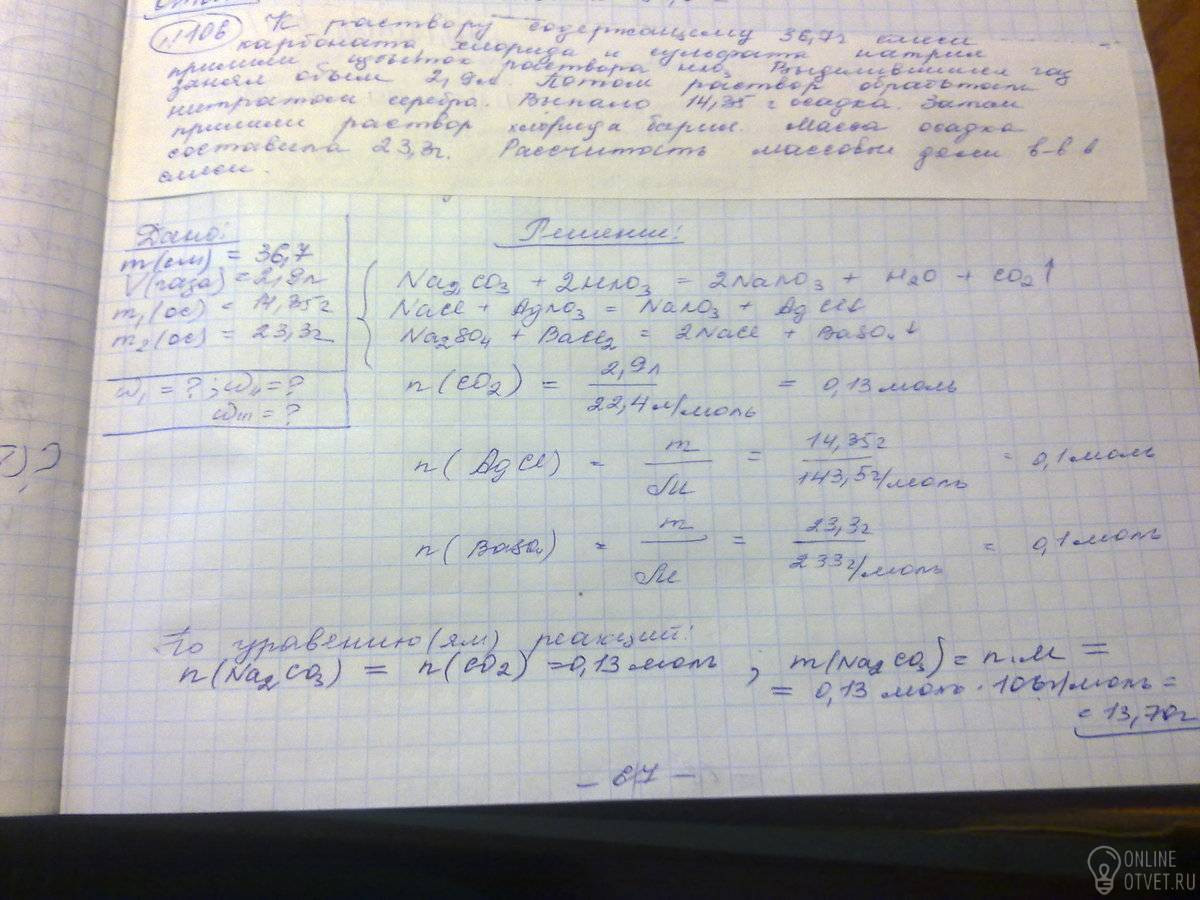 №106 К раствору содержащему 36,7г смеси
карбоната, хлорида и сульфата натрия
прилили избыток раствора HNO3. Выделившийся газ
занял объём 2,9л. Потом раствор обработали
нитратом серебра. Выпало 14,35 г осадка. Затем
прилили раствор хлорида бария. Масса осадка
составила 23,3г. Рассчитать массовые доли в-в в
смеси.
Дано:
m(см) = 36,7
V(газа) = 2,9л
m1(ос) = 14,35г
m2(ос) = 23,3г
ω1 = ? ; ω11 = ?
ω111 = ?
Решение:
Na2CO3 + 2HNO3 = 2NaNO3 + H2O + CO2↑
NaCl + AgNO3 = NaNO3 + AgCl↓
Na2SO4 + BaCl2 = 2NaCl + BaSO4↓
n(CO2) = 2,9л / 22,4л/моль = 0,13 моль
n(AgCl) = m / M = 14,35г / 143,5г/моль = 0,1 моль
n(BaSO4) = m / M = 23,3г / 233г/моль = 0,1 моль
По уравению(ям) реакций:
n(Na2CO3) = n(CO2) = 0,13 моль ; m(Na2CO3) = n.M =
= 0,13 моль · 106г/моль =
= 13,70г
- 67 -
?)?
ONLINE
OTVET.RU